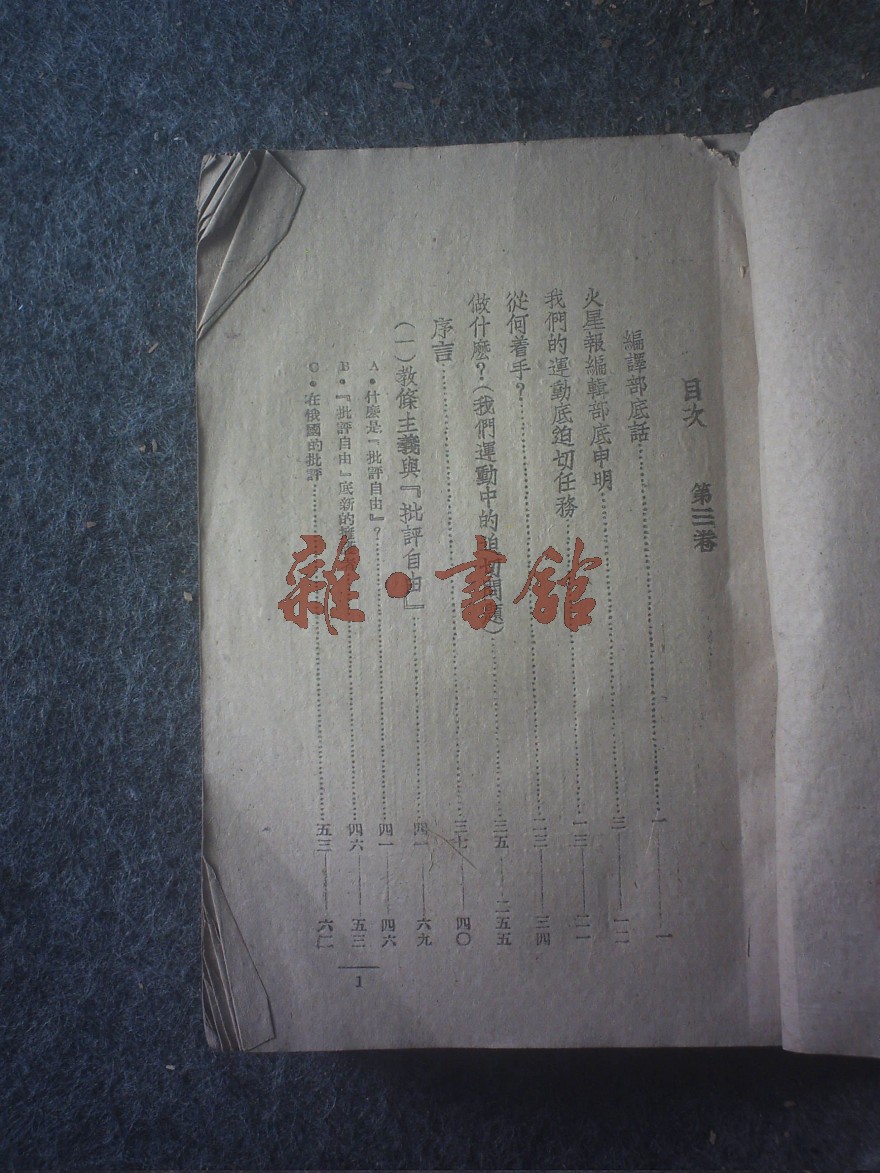 目次　第三卷
編譯部底話………一——一
火星報編輯部底申明………三——一二
我們的運動底迫切任務………一三——二一
從何着手？………二三——三四
做什麼？（我們運動中的迫切問題）………三五——二五五
序言………三七——四〇
（一）教條主義與『批評自由』………四一——六九
A・什麼是『批評自由』？………四一——四六
B・『批評自由』底新的………四六——五三
C・在俄國的批評………五三——六二
1
雜・書館